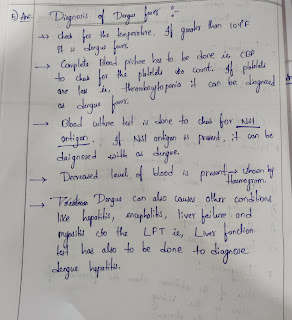 5) Ans:- Diagnosis of Dengue fever :-
→ check for the temperature. If greater than 104°F
It is dengue fever.
→ Complete Blood picture has to be done i.e, CBP
to check for the platelets count. If platelets
are less i.e, thrombocytopenia it can be diagnosed
as dengue fever.
→ Blood culture test is done to check for NS1
antigen. If NS1 antigen is present, it can be
daignosed with as dengue.
→ Decreased level of blood is present → shown by
Hemogram.
→ Dengue can also causes other conditions
like hepatitis, encephalitis, liver failure and
myositis do the LFT i.e, Liver function
test has also to be done to diagnose
dengue hepatitis.